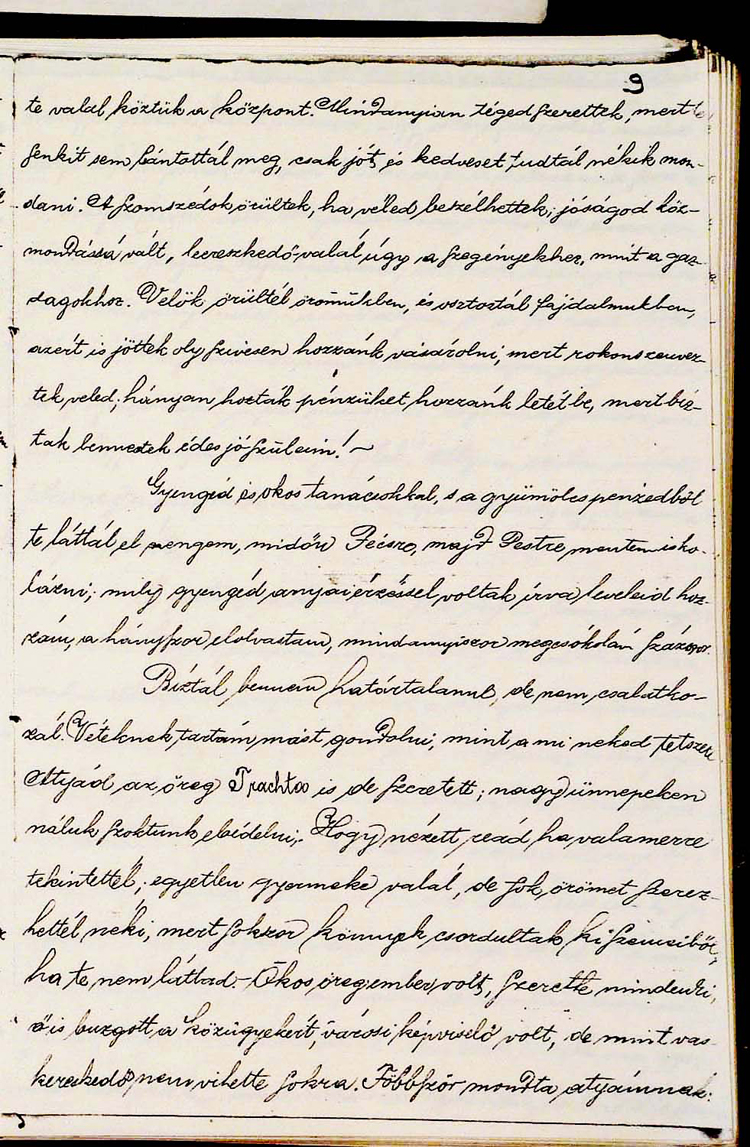 9
te valál köztük a központ. Mindanyian téged szerettek, mert
senkit sem bántottál meg, csak jót és kedveset tudtál nékik mon-
dani. A szomszédok örültek, ha véled beszélhettek; jóságod köz-
mondássá vált, leereszkedő valál úgy a szegényekhez, mint a gaz-
dagokhoz. Velök örültél örömükben, és osztoztál fájdalmukban,
azért is jöttek oly szivesen hozzánk vásárolni, mert rokonszenvez-
tek veled; hányan hozták pénzüket hozzánk letétbe, mert biz-
tak bennetek édes jó szüleim! ~
Gyengéd és okos tanácsokkal, s a gyümölcs pénzedből
te láttál el engem, midőn Pécsre, majd Pestre mentem isko-
lázni; mily gyengéd anyai érzéssel voltak írva leveleid hoz-
zám, a hányszor elolvastam, mindannyiszor megcsókolám százszor.
Biztál bennem határtalanul, de nem csalatko-
zál. Véteknek tartám mást gondolni, mint a mi neked tetszett
Atyád az öreg Trachta is de szeretett; nagy ünnepeken
náluk szoktunk ebédelni. Hogy nézett reád ha valamerre
tekintettél; egyetlen gyermeke valál, de sok örömet szerez-
hettél néki, mert sokszor könnyek csordultak ki szemeiből,
ha te nem láttad. – Okos öreg ember volt, szerette mindenki,
ő is buzgott a közügyekért, városi képviselő volt, de mint vas-
kereskedő nem vihette sokra. Többször mondta atyámnak: